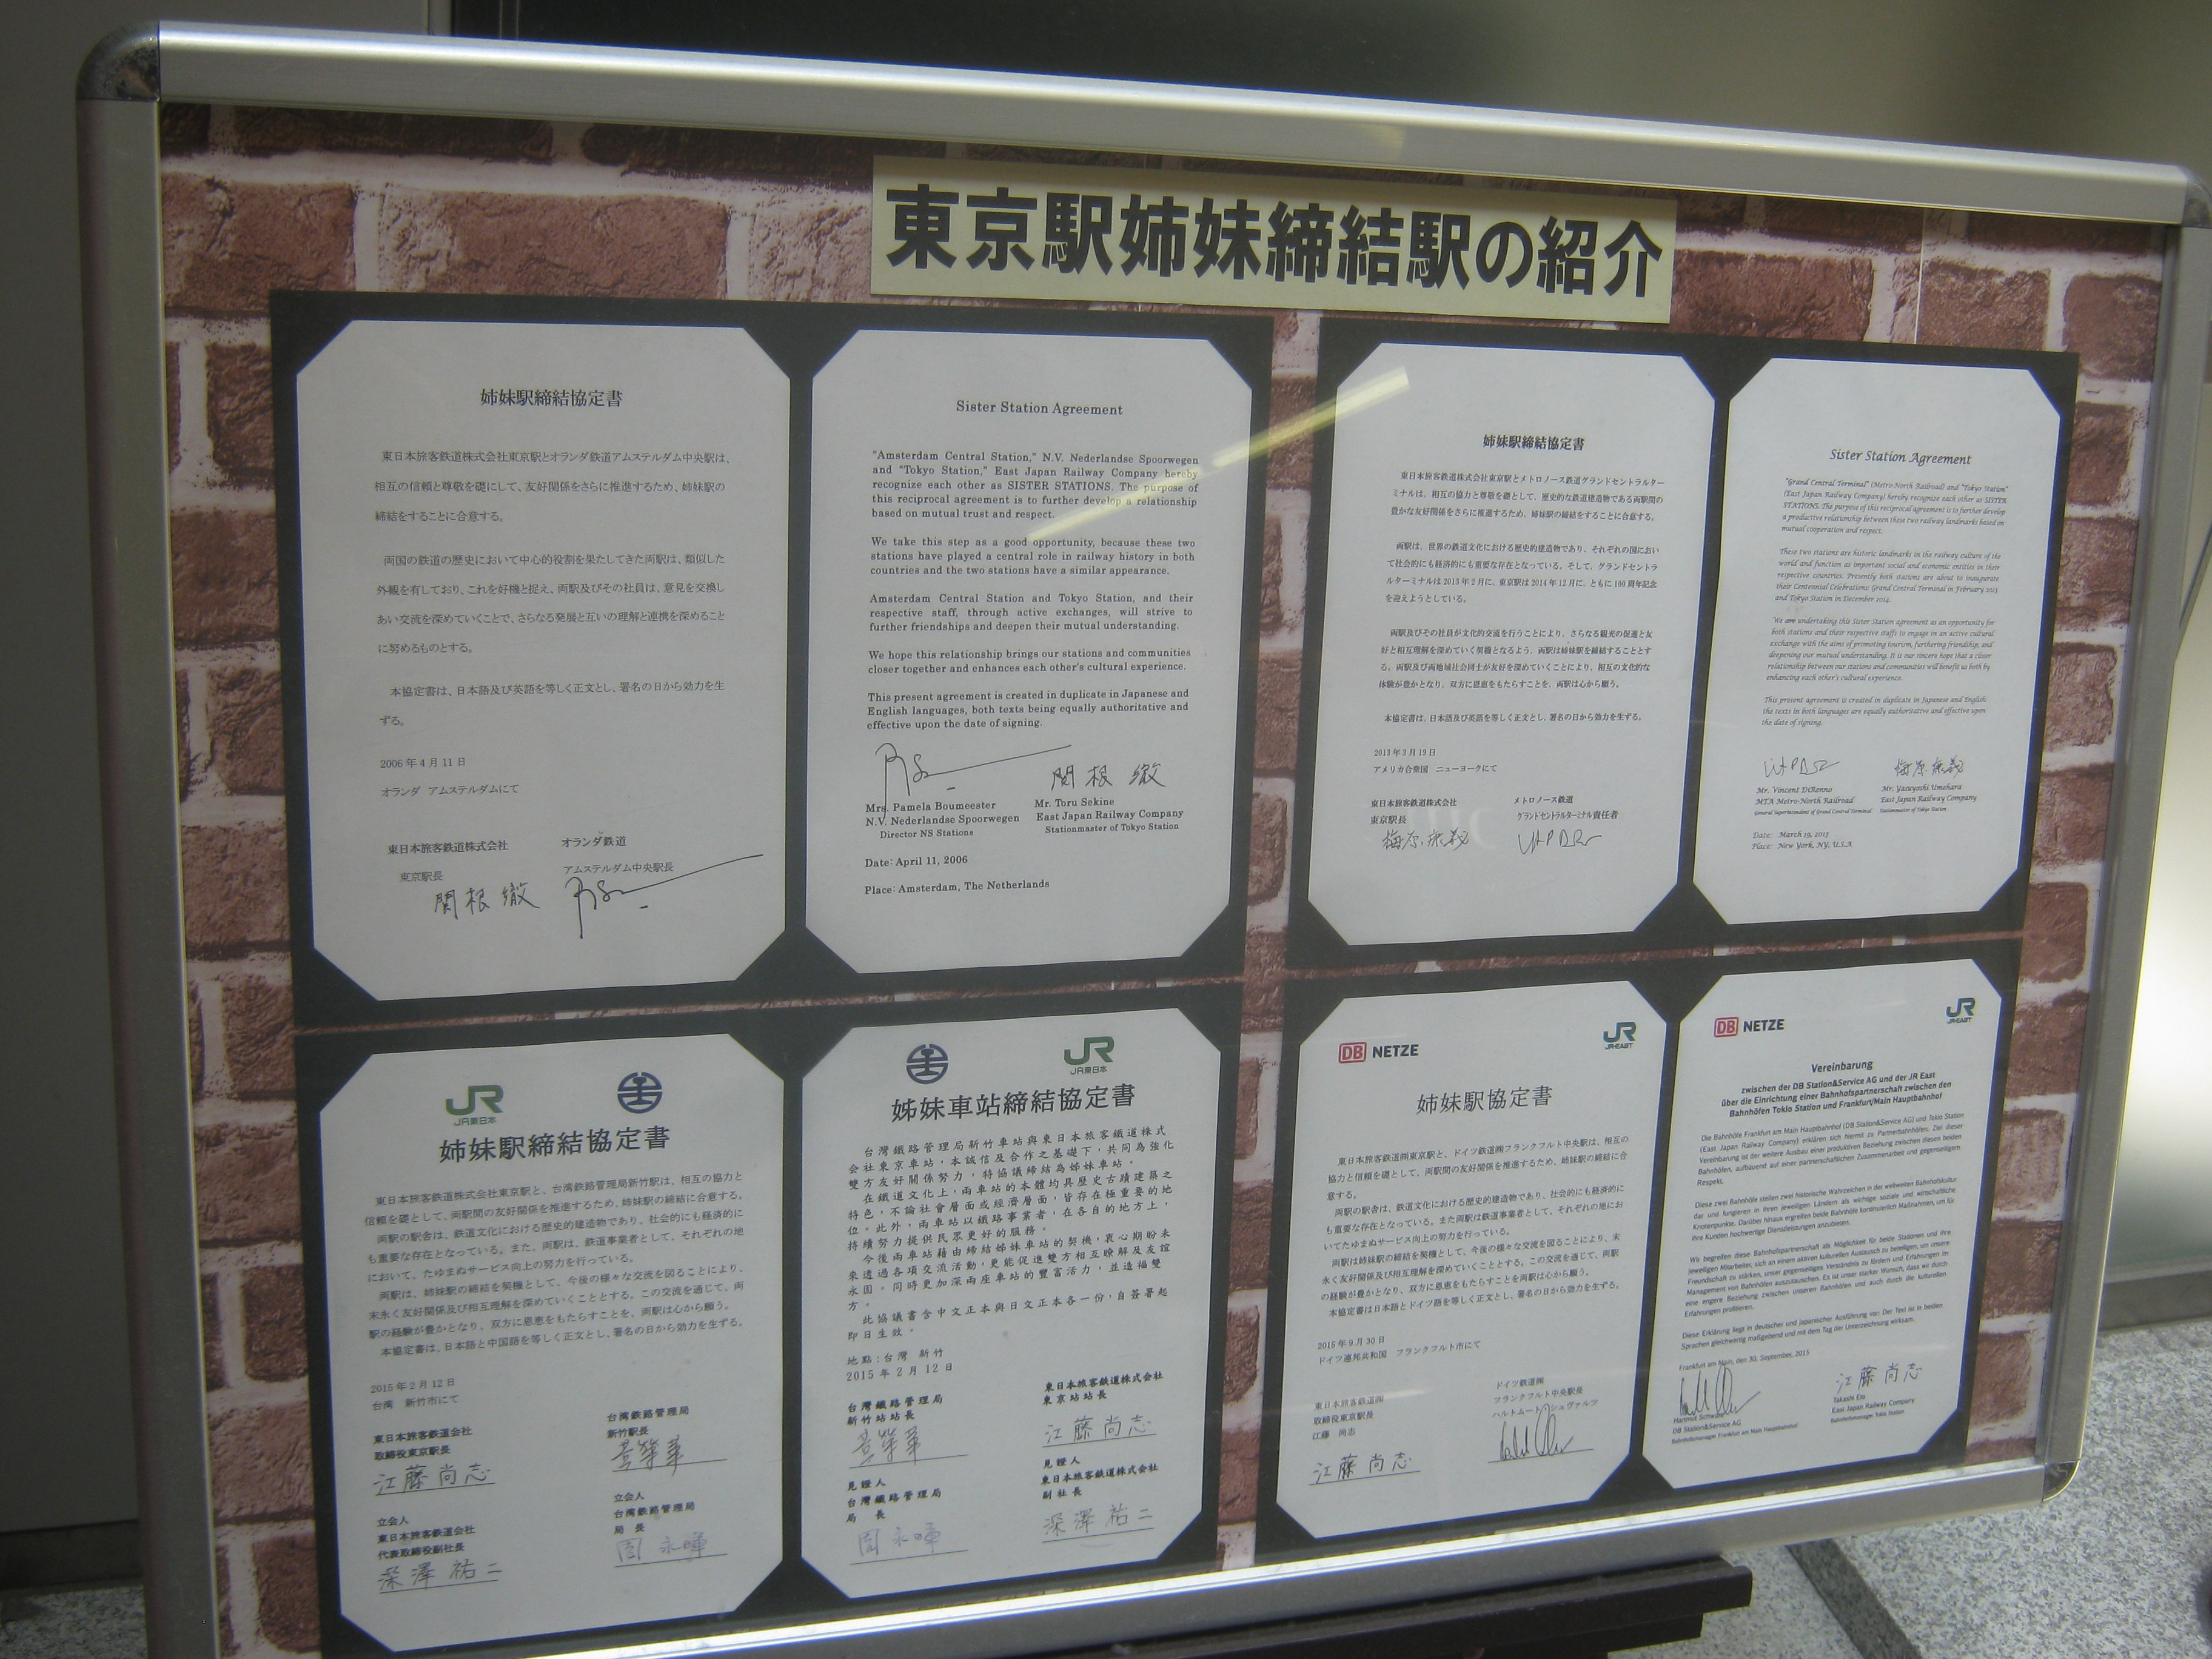 東京駅姉妹締結駅の紹介
姉妹駅締結協定書
東日本旅客鉄道株式会社東京駅とオランダ鉄道アムステルダム中央駅は、
相互の信頼と尊敬を礎にして、友好関係をさらに推進するため、姉妹駅の
締結をすることに合意する。
両国の鉄道の歴史において中心的役割を果たしてきた両駅は、類似した
外観を有しており、これを好機と捉え、両駅及びその社員は、意見を交換し
あい交流を深めていくことで、さらなる発展と互いの理解と連携を深めること
に努めるものとする。
本協定書は、日本語及び英語を等しく正文とし、署名の日から効力を生
ずる。
2006年4月11日
オランダ アムステルダムにて
東日本旅客鉄道株式会社
東京駅長
関根 徹
オランダ鉄道
アムステルダム中央駅長
Sister Station Agreement
"Amsterdam Central Station," N.V. Nederlandse Spoorwegen
and "Tokyo Station," East Japan Railway Company hereby
recognize each other as SISTER STATIONS. The purpose of
this reciprocal agreement is to further develop a relationship
based on mutual trust and respect.
We take this step as a good opportunity, because these two
stations have played a central role in railway history in both
countries and the two stations have a similar appearance.
Amsterdam Central Station and Tokyo Station, and their
respective staff, through active exchanges, will strive to
further friendships and deepen their mutual understanding.
We hope this relationship brings our stations and communities
closer together and enhances each other's cultural experience.
This present agreement is created in duplicate in Japanese and
English languages, both texts being equally authoritative and
effective upon the date of signing.
関根 徹
Mrs. Pamela Boumeester
N.V. Nederlandse Spoorwegen
Director NS Stations
Mr. Toru Sekine
East Japan Railway Company
Stationmaster of Tokyo Station
Date: April 11, 2006
Place: Amsterdam, The Netherlands
姉妹駅締結協定書
東日本旅客鉄道株式会社東京駅とメトロノース鉄道グランドセントラルター
ミナルは、相互の協力と尊敬を礎として、歴史的な鉄道建造物である両駅間の
豊かな友好関係をさらに推進するため、姉妹駅の締結をすることに合意する。
両駅は、世界の鉄道文化における歴史的建造物であり、それぞれの国におい
て社会的にも経済的にも重要な存在となっている。そして、グランドセントラ
ルターミナルは2013年2月に、東京駅は2014年12月に、ともに100周年記念
を迎えようとしている。
両駅及びその社員が文化的交流を行うことにより、さらなる観光の促進と友
好と相互理解を深めていく契機となるよう、両駅は姉妹駅を締結することとす
る。両駅及び両地域社会同士が友好を深めていくことにより、相互の文化的な
体験が豊かとなり、双方に恩恵をもたらすことを、両駅は心から願う。
本協定書は、日本語及び英語を等しく正文とし、署名の日から効力を生ずる。
2013年3月19日
アメリカ合衆国 ニューヨークにて
東日本旅客鉄道株式会社
東京駅長
梅原康義
メトロノース鉄道
グランドセントラルターミナル責任者
Sister Station Agreement
"Grand Central Terminal" (Metro-North Railroad) and "Tokyo Station"
(East Japan Railway Company) hereby recognize each other as SISTER
STATIONS. The purpose of this reciprocal agreement is to further develop
a productive relationship between these two railway landmarks based on
mutual cooperation and respect.
These two stations are historic landmarks in the railway culture of the
world and function as important social and economic entities in their
respective countries. Presently both stations are about to inaugurate
their Centennial Celebrations: Grand Central Terminal in February 2013
and Tokyo Station in December 2014.
We are undertaking this Sister Station agreement as an opportunity for
both stations and their respective staffs to engage in an active cultural
exchange with the aims of promoting tourism, furthering friendship, and
deepening our mutual understanding. It is our sincere hope that a closer
relationship between our stations and communities will benefit us both by
enhancing each other's cultural experience.
This present agreement is created in duplicate in Japanese and English;
the texts in both languages are equally authoritative and effective upon
the date of signing.
梅原康義
Mr. Vincent DiRenno
MTA Metro-North Railroad
General Superintendent of Grand Central Terminal
Mr. Yasuyoshi Umehara
East Japan Railway Company
Stationmaster of Tokyo Station
Date: March 19, 2013
Place: New York, NY, U.S.A
JR
JR東日本
姉妹駅締結協定書
東日本旅客鉄道株式会社東京駅と、台湾鉄路管理局新竹駅は、相互の協力と
信頼を礎として、両駅間の友好関係を推進するため、姉妹駅の締結に合意する。
両駅の駅舎は、鉄道文化における歴史的建造物であり、社会的にも経済的に
も重要な存在となっている。また、両駅は、鉄道事業者として、それぞれの地
において、たゆまぬサービス向上の努力を行っている。
両駅は、姉妹駅の締結を契機として、今後の様々な交流を図ることにより、
末永く友好関係及び相互理解を深めていくこととする。この交流を通じて、両
駅の経験が豊かとなり、双方に恩恵をもたらすことを、両駅は心から願う。
本協定書は、日本語と中国語を等しく正文とし、署名の日から効力を生ずる。
2015年2月12日
台湾 新竹市にて
東日本旅客鉄道株式会社
取締役東京駅長
江藤尚志
台湾鉄路管理局
新竹駅長
立会人
東日本旅客鉄道会社
代表取締役副社長
深澤祐二
立会人
台湾鉄路管理局
局 長
周永暉
JR
JR東日本
姊妹車站締結協定書
台灣鐵路管理局新竹車站與東日本旅客鐵道株式
会社東京車站，本誠信及合作之基礎下，共同為強化
雙方友好關係努力，特協議締結為姊妹車站。
在鐵道文化上，兩車站的本體均具歷史古蹟建築之
特色，不論社會層面或經濟層面，皆存在極重要的地
位。此外，兩車站以鐵路事業者，在各自的地方上，
持續努力提供民眾更好的服務。
今後兩車站藉由締結姊妹車站的契機，衷心期盼未
來透過各項交流活動，更能促進雙方相互瞭解及友誼
永固，同時更加深兩座車站的豐富活力，並造福雙
方。
此協議書含中文正本與日文正本各一份，自簽署起
即日生效。
地點：台灣 新竹
2015年2月12日
台灣鐵路管理局
新竹站站長
東日本旅客鉄道株式会社
東京站站長
江藤尚志
見證人
台灣鐵路管理局
局 長
周永暉
見證人
東日本旅客鉄道株式会社
副社長
深澤祐二
DB NETZE
JR
JR-EAST
姉妹駅協定書
東日本旅客鉄道㈱東京駅と、ドイツ鉄道㈱フランクフルト中央駅は、相互の
協力と信頼を礎として、両駅間の友好関係を推進するため、姉妹駅の締結に合
意する。
両駅の駅舎は、鉄道文化における歴史的建造物であり、社会的にも経済的に
も重要な存在となっている。また両駅は鉄道事業者として、それぞれの地にお
いてたゆまぬサービス向上の努力を行っている。
両駅は姉妹駅の締結を契機として、今後の様々な交流を図ることにより、末
永く友好関係及び相互理解を深めていくこととする。この交流を通じて、両駅
の経験が豊かとなり、双方に恩恵をもたらすことを両駅は心から願う。
本協定書は日本語とドイツ語を等しく正文とし、署名の日から効力を生ずる。
2015年9月30日
ドイツ連邦共和国 フランクフルト市にて
東日本旅客鉄道㈱
取締役東京駅長
江藤 尚志
江藤尚志
ドイツ鉄道㈱
フランクフルト中央駅長
ハルトムート・シュヴァルツ
DB NETZE
JR
JR-EAST
Vereinbarung
zwischen der DB Station&Service AG und der JR East
über die Einrichtung einer Bahnhofspartnerschaft zwischen den
Bahnhöfen Tokio Station und Frankfurt/Main Hauptbahnhof
Die Bahnhöfe Frankfurt am Main Hauptbahnhof (DB Station&Service AG) und Tokio Station
(East Japan Railway Company) erklären sich hiermit zu Partnerbahnhöfen. Ziel dieser
Vereinbarung ist der weitere Ausbau einer produktiven Beziehung zwischen diesen beiden
Bahnhöfen, aufbauend auf einer partnerschaftlichen Zusammenarbeit und gegenseitigem
Respekt.
Diese zwei Bahnhöfe stellen zwei historische Wahrzeichen in der weltweiten Bahnhofskultur
dar und fungieren in ihren jeweiligen Ländern als wichtige soziale und wirtschaftliche
Knotenpunkte. Darüber hinaus ergreifen beide Bahnhöfe kontinuierlich Maßnahmen, um für
ihre Kunden hochwertige Dienstleistungen anzubieten.
Wir begreifen diese Bahnhofspartnerschaft als Möglichkeit für beide Stationen und ihre
jeweiligen Mitarbeiter, sich an einem aktiven kulturellen Austausch zu beteiligen, um unsere
Freundschaft zu stärken, unser gegenseitiges Verständnis zu fördern und Erfahrungen im
Management von Bahnhöfen auszutauschen. Es ist unser starker Wunsch, dass wir durch
eine engere Beziehung zwischen unseren Bahnhöfen und auch durch die kulturellen
Erfahrungen profitieren.
Diese Erklärung liegt in deutscher und japanischer Ausführung vor. Der Text ist in beiden
Sprachen gleichwertig maßgebend und mit dem Tag der Unterzeichnung wirksam.
Frankfurt am Main, den 30. September, 2015
江藤尚志
Hartmut Schwarz
DB Station&Service AG
Bahnhofsmanager Frankfurt am Main Hauptbahnhof
Takashi Eto
East Japan Railway Company
Bahnhofsmanager Tokio Station